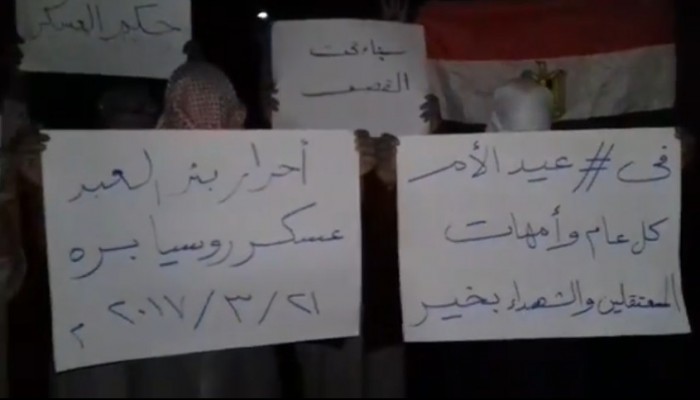 حكم العسكر
سيناء تحت
القصف
أحرار بئر العبد
عسكر روسيا بره
٢١ / ٣ / ٢٠١٧ م
فى # عيد الأم
كل عام وأمهات
المعتقلين والشهداء بخير